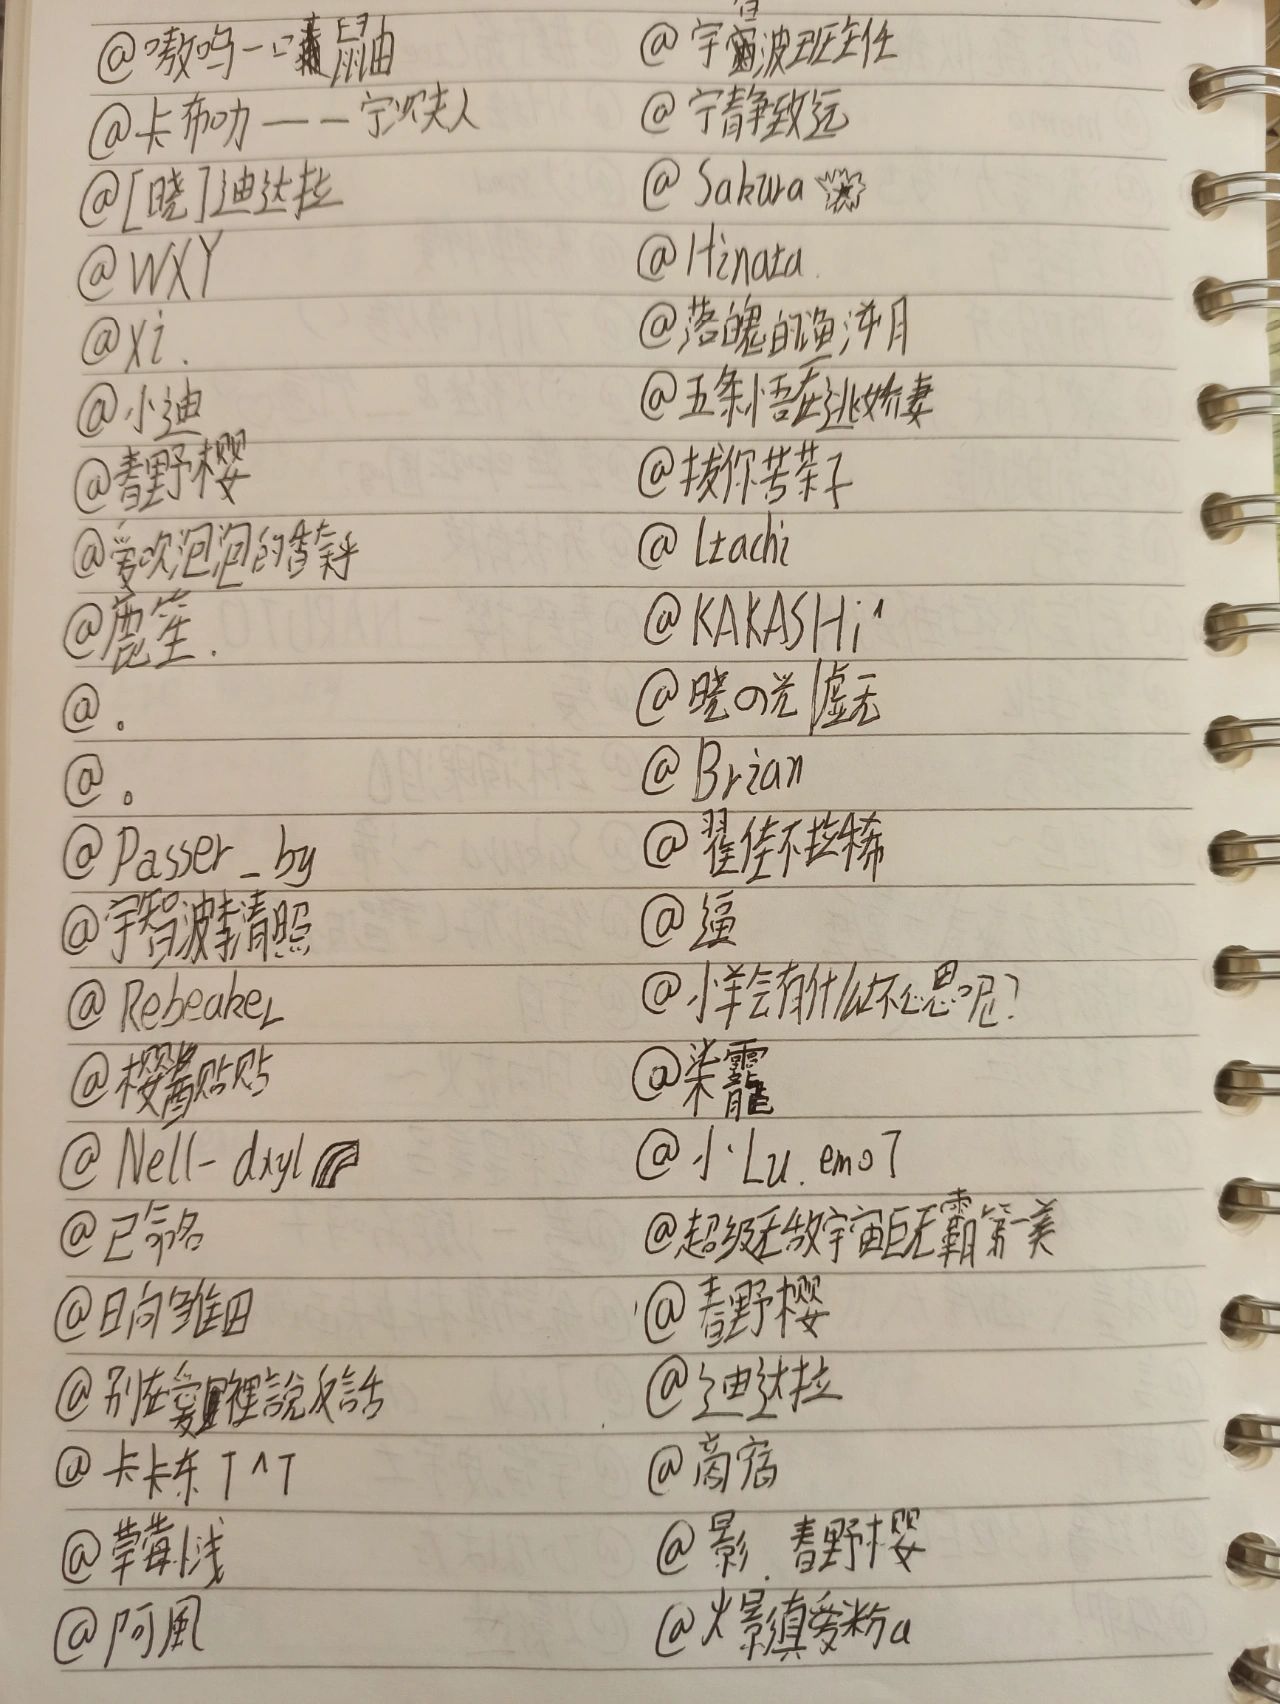 @嗷呜一口
@卡布叻——宁次夫人
@[晓]迪达拉
@WXY
@xi.
@小迪
@春野樱
@爱吹泡泡的
@鹿笙.
@.
@。
@Passer_by
@宇智波李清照
@RebeakeL
@樱酱贴贴
@Nell-dxyl🌈
@已命名
@日向雏田
@别在愛裡說反話
@卡卡东T^T
@草莓小浅
@阿風
@宇智波班主任
@宁静致远
@Sakura
@Hinata.
@落魄的渔洋月
@五条悟在逃娇妻
@拔你苦茶子
@Itachi
@KAKASHi^
@晓の光|虚无
@Brian
@翟佳不拉稀
@逼
@小羊会有什么坏心思呢?
@柒靇
@小Lu.emo7
@超级无敌宇宙巨无霸第一美
@春野樱
@迪达拉
@商宿
@影.春野樱
@爆镇爱粉a